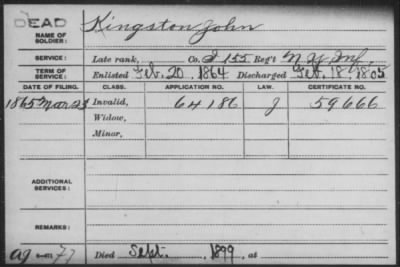 DEAD
NAME OF SOLDIER: Kingston John
SERVICE: Late rank, Co. I 155 Reg't N.Y. Inf.
TERM OF SERVICE: Enlisted Feb. 20, 1864 Discharged Feb. 18, 1865
DATE OF FILING. CLASS. APPLICATION NO. LAW. CERTIFICATE NO.
1865 Mar 23 Invalid, 64186 J 59666
Widow,
Minor,
ADDITIONAL SERVICES:
REMARKS:
Died Sept. , 1899, at